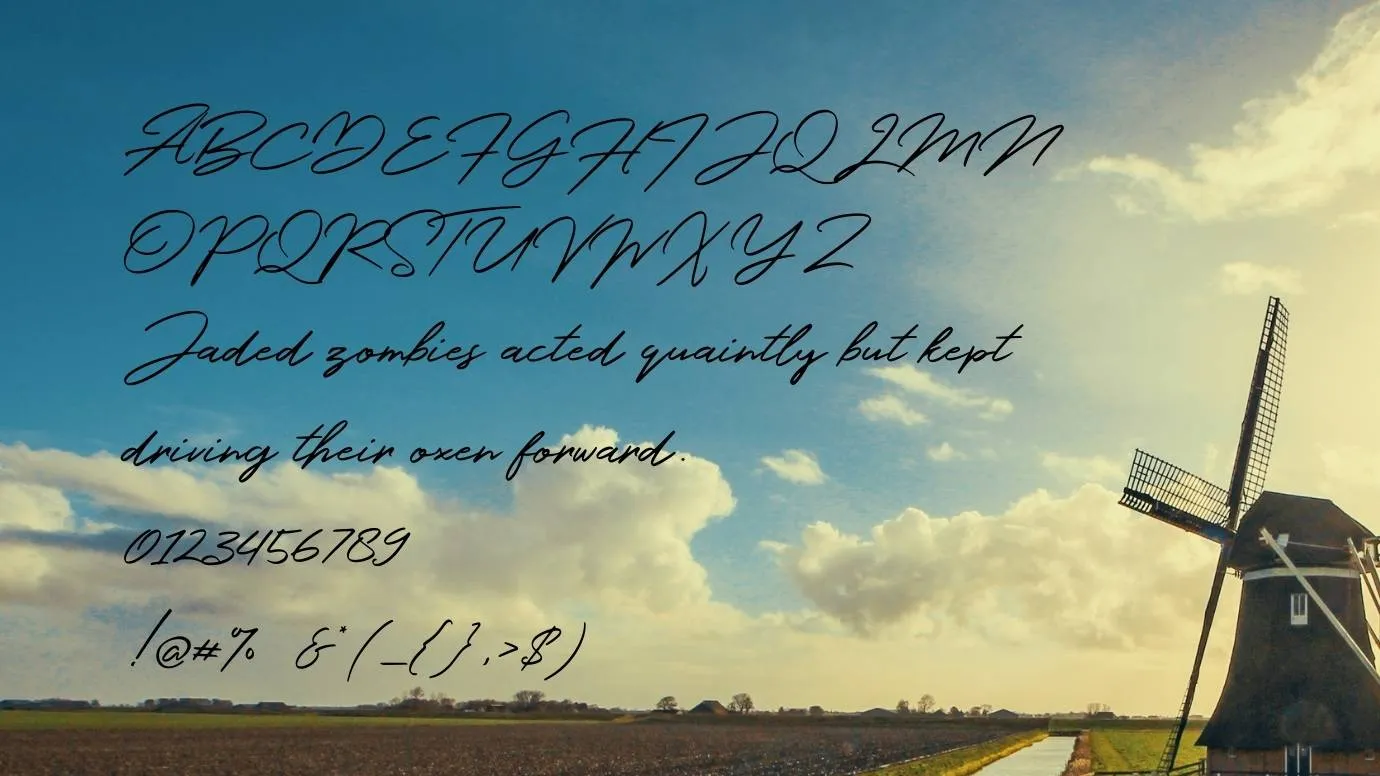 ABCDEFGHIJQLMN
OPQRSTUVWXYZ
Jaded zombies acted quaintly but kept
driving their oxen forward.
0123456789
!@#% &*(_{},>$)